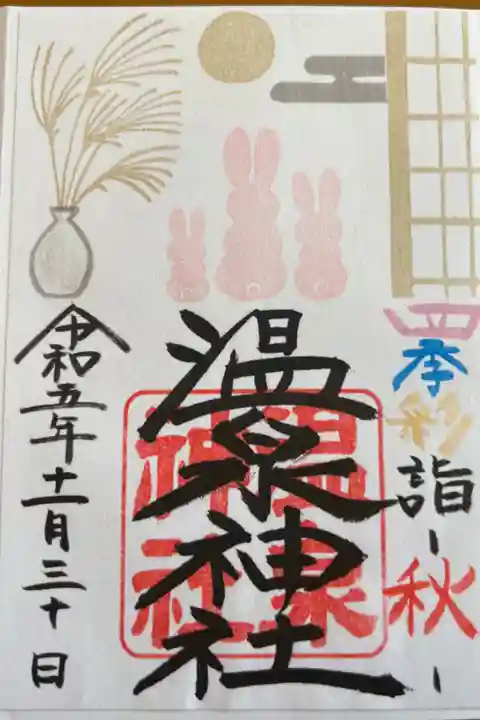 四季彩詣-秋-
温泉神社
温泉神社
令和五年十一月三十日